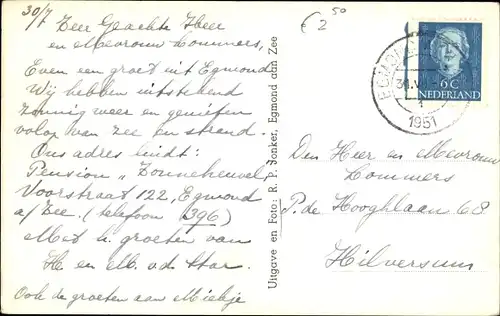 30/7 Zeer Geachte Heer
en Mevrouw Lommers,
Even een groet uit Egmond
Wij hebben uitstekend
zonnig weer en genieten
volop van zee en strand.
Ons adres luidt:
Pension "Zonneheuvel"
Voorstraat 122, Egmond
a/Zee. (telefoon 396)
Met h. groeten van
H. en M. v.d. Star.
Ook de groeten aan Miekje
Uitgave en Foto: R. P. Bonker, Egmond aan Zee
€ 2 50
EGMOND
31.V
1
1951
6 C
NEDERLAND
Den Heer en Mevrouw
Lommers
P. de Hooghlaan 68
Hilversum